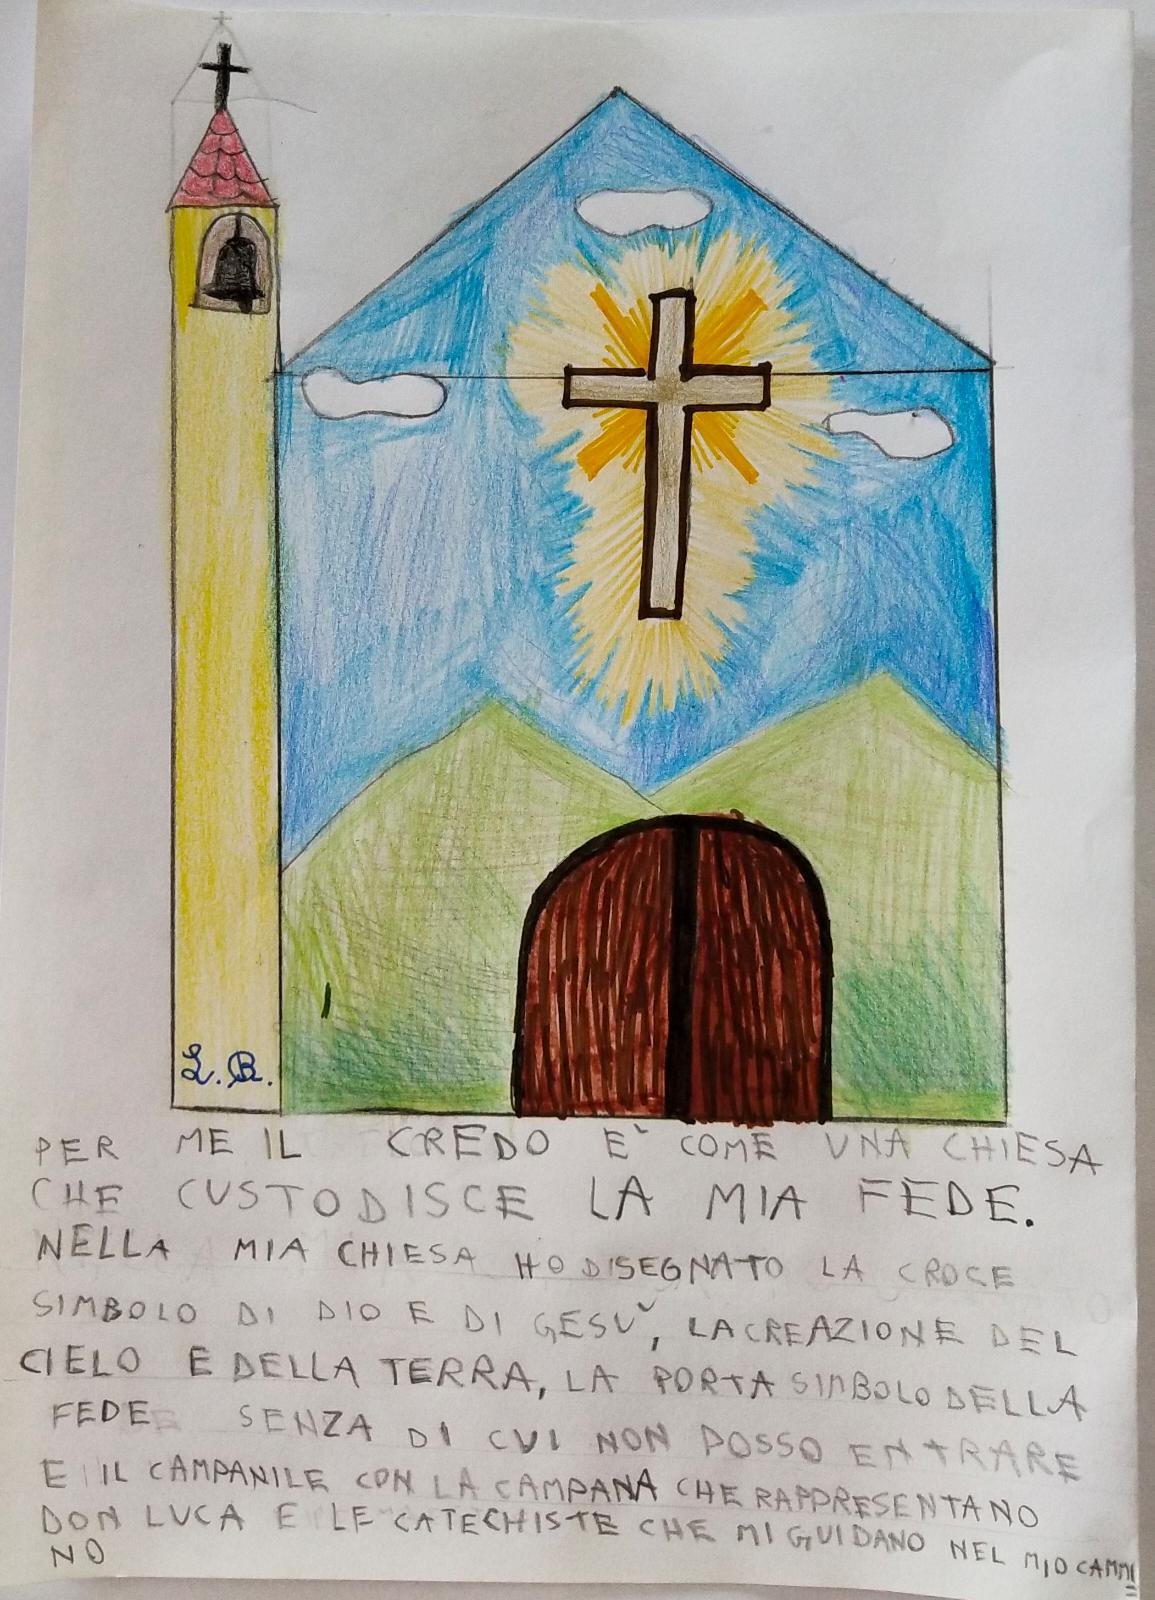 L.B.
PER ME IL CREDO E` COME UNA CHIESA
CHE CUSTODISCE LA MIA FEDE.
NELLA MIA CHIESA HO DISEGNATO LA CROCE
SIMBOLO DI DIO E DI GESU`, LA CREAZIONE DEL
CIELO E DELLA TERRA, LA PORTA SIMBOLO DELLA
FEDE SENZA DI CUI NON POSSO ENTRARE
E IL CAMPANILE CON LA CAMPANA CHE RAPPRESENTANO
DON LUCA E LE CATECHISTE CHE MI GUIDANO NEL MIO CAMMI=
NO